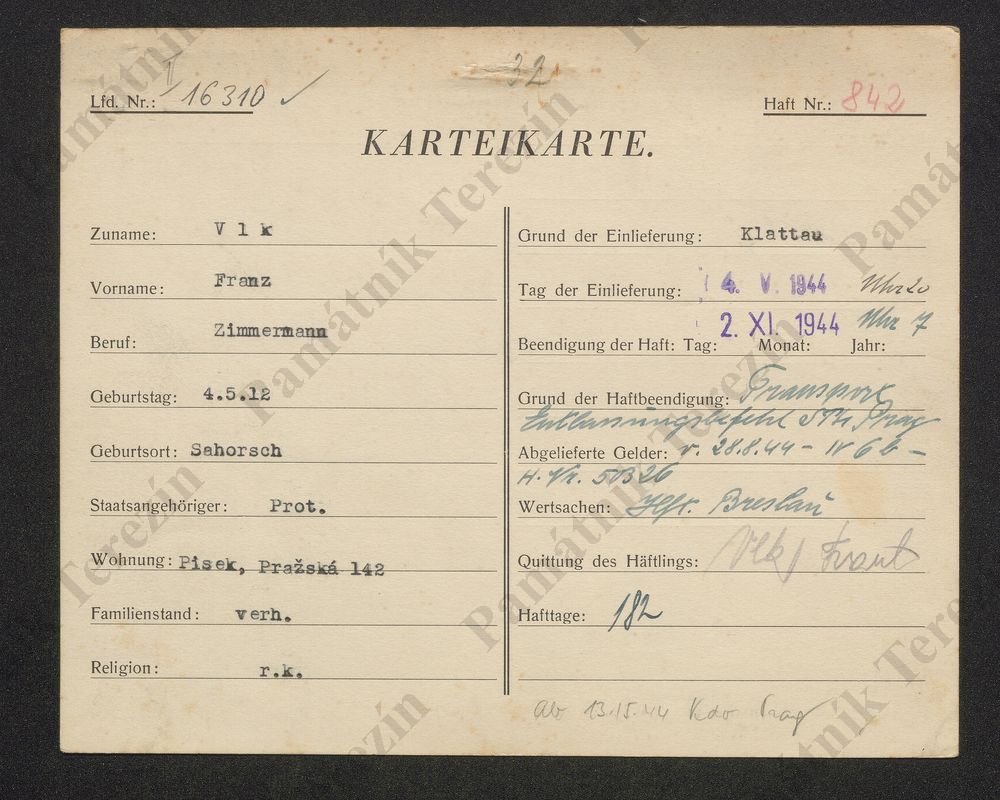 II
Lfd. Nr.: 16310 ✓
32
Haft Nr.: 842
KARTEIKARTE.
Zuname: Vlk
Vorname: Franz
Beruf: Zimmermann
Geburtstag: 4.5.12
Geburtsort: Sahorsch
Staatsangehöriger: Prot.
Wohnung: Pisek, Pražská 142
Familienstand: verh.
Religion: r.k.
Grund der Einlieferung: Klattau
Tag der Einlieferung: 4. V. 1944 Uhr 20
2. XI. 1944 Uhr 7
Beendigung der Haft: Tag: Monat: Jahr:
Grund der Haftbeendigung: Transport
Entlassungsbefehl Prag
Abgelieferte Gelder: v. 28.8.44 - IV 6 b -
H. Nr. 50326
Wertsachen: Breslau
Quittung des Häftlings: Vlk Frant
Hafttage: 182
Ab 13./5.44 Kdo Prag
Památník Terezín
Památník Terezín
Památník Terezín
Památník Terezín
Památník Terezín